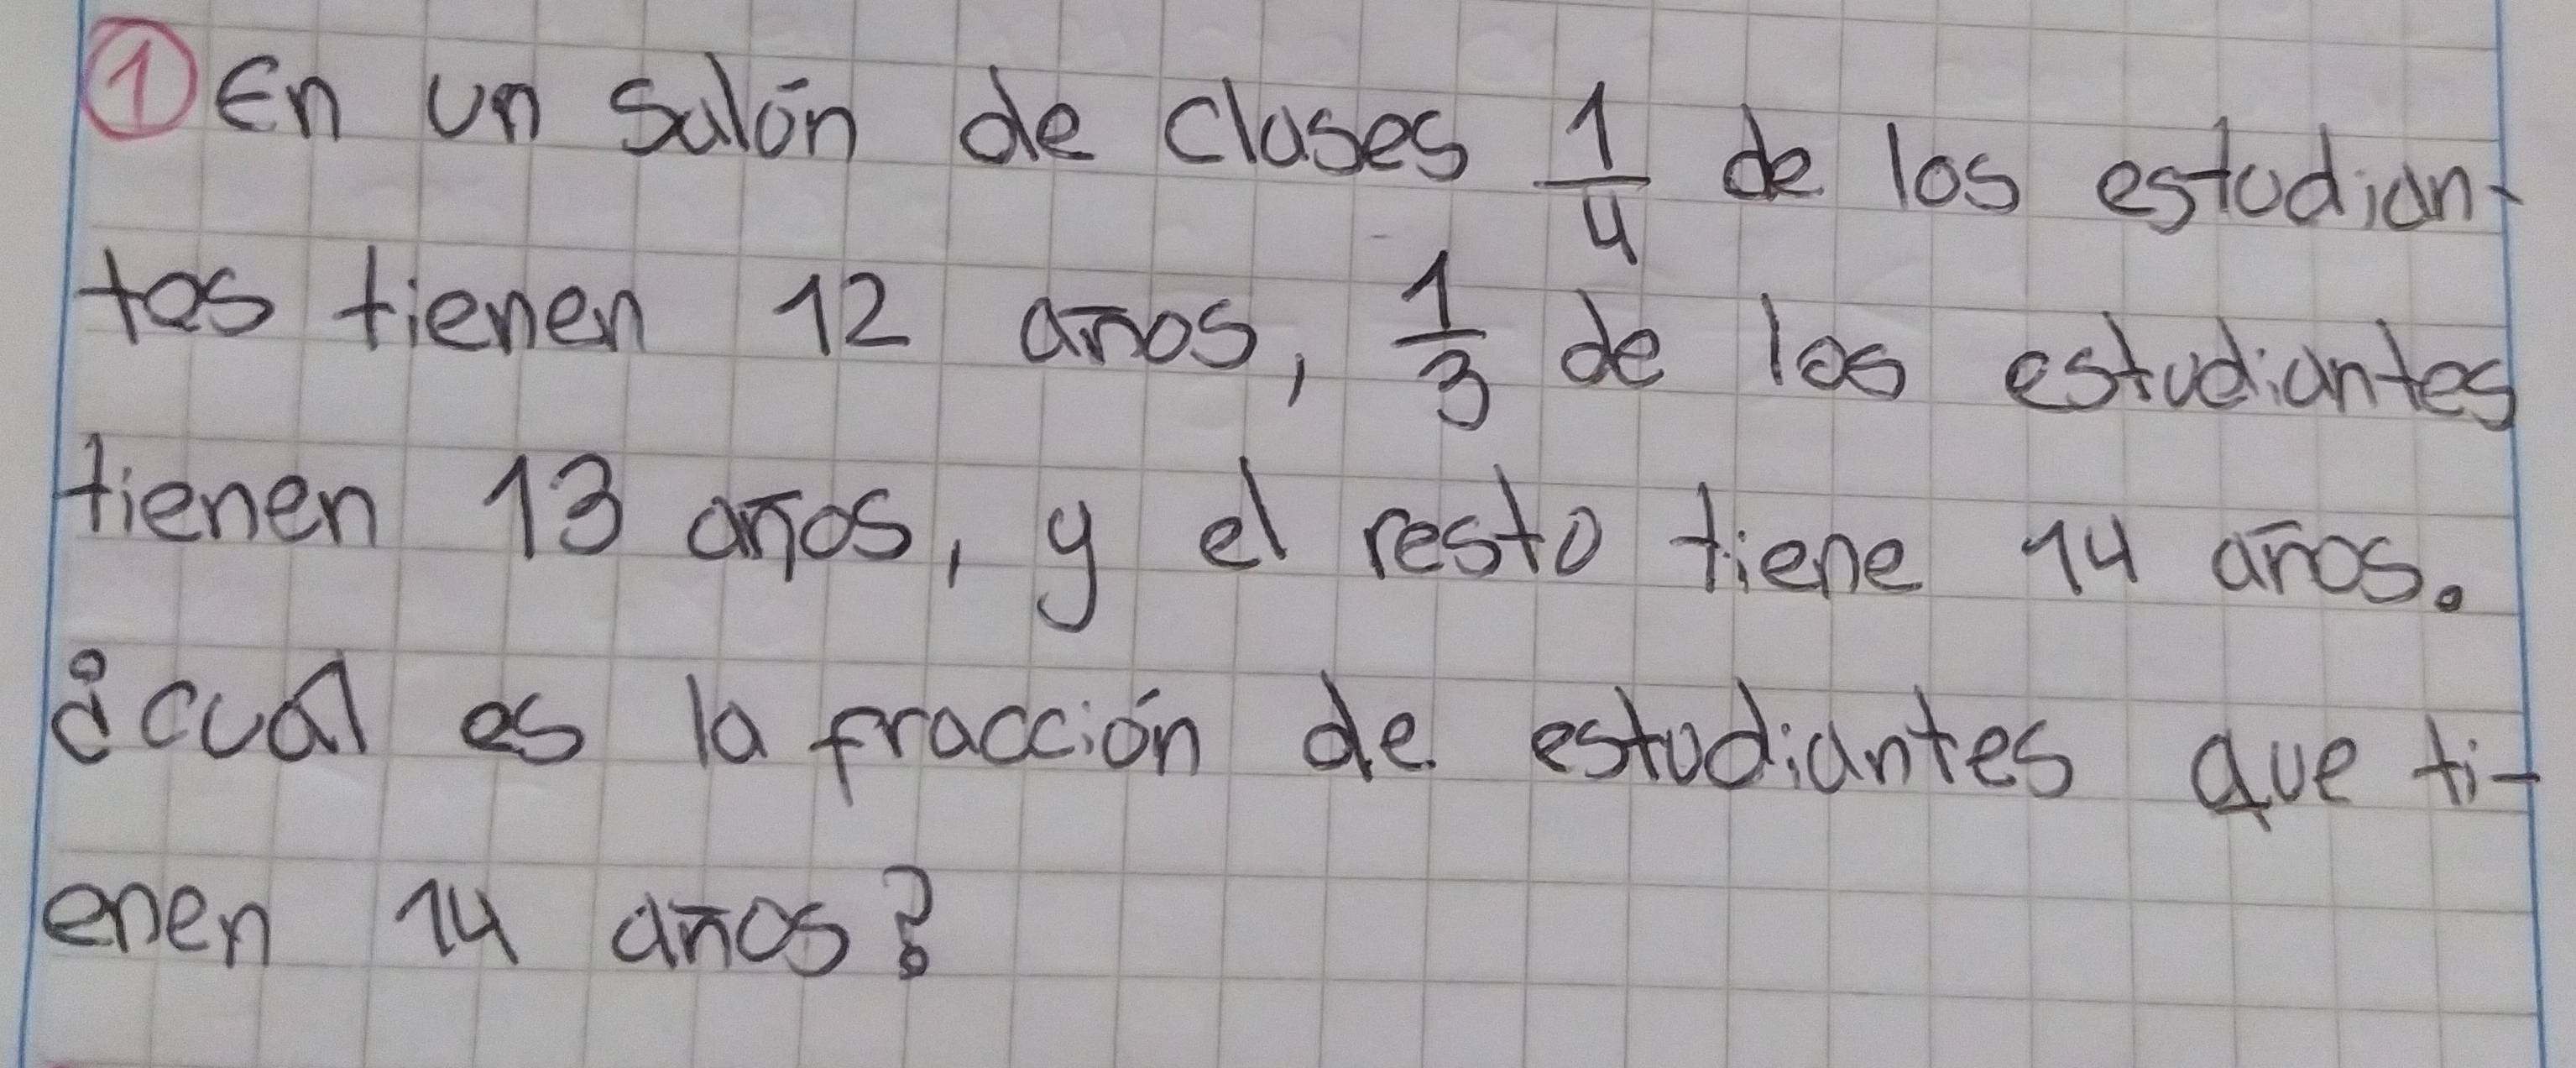 ① En un salón de clases 1/4 de los estudian-
tes tienen 12 años, 1/3 de los estudiantes
tienen 13 años, y el resto tiene 14 años.
¿cuál es la fracción de estudiantes que ti-
enen 14 años?